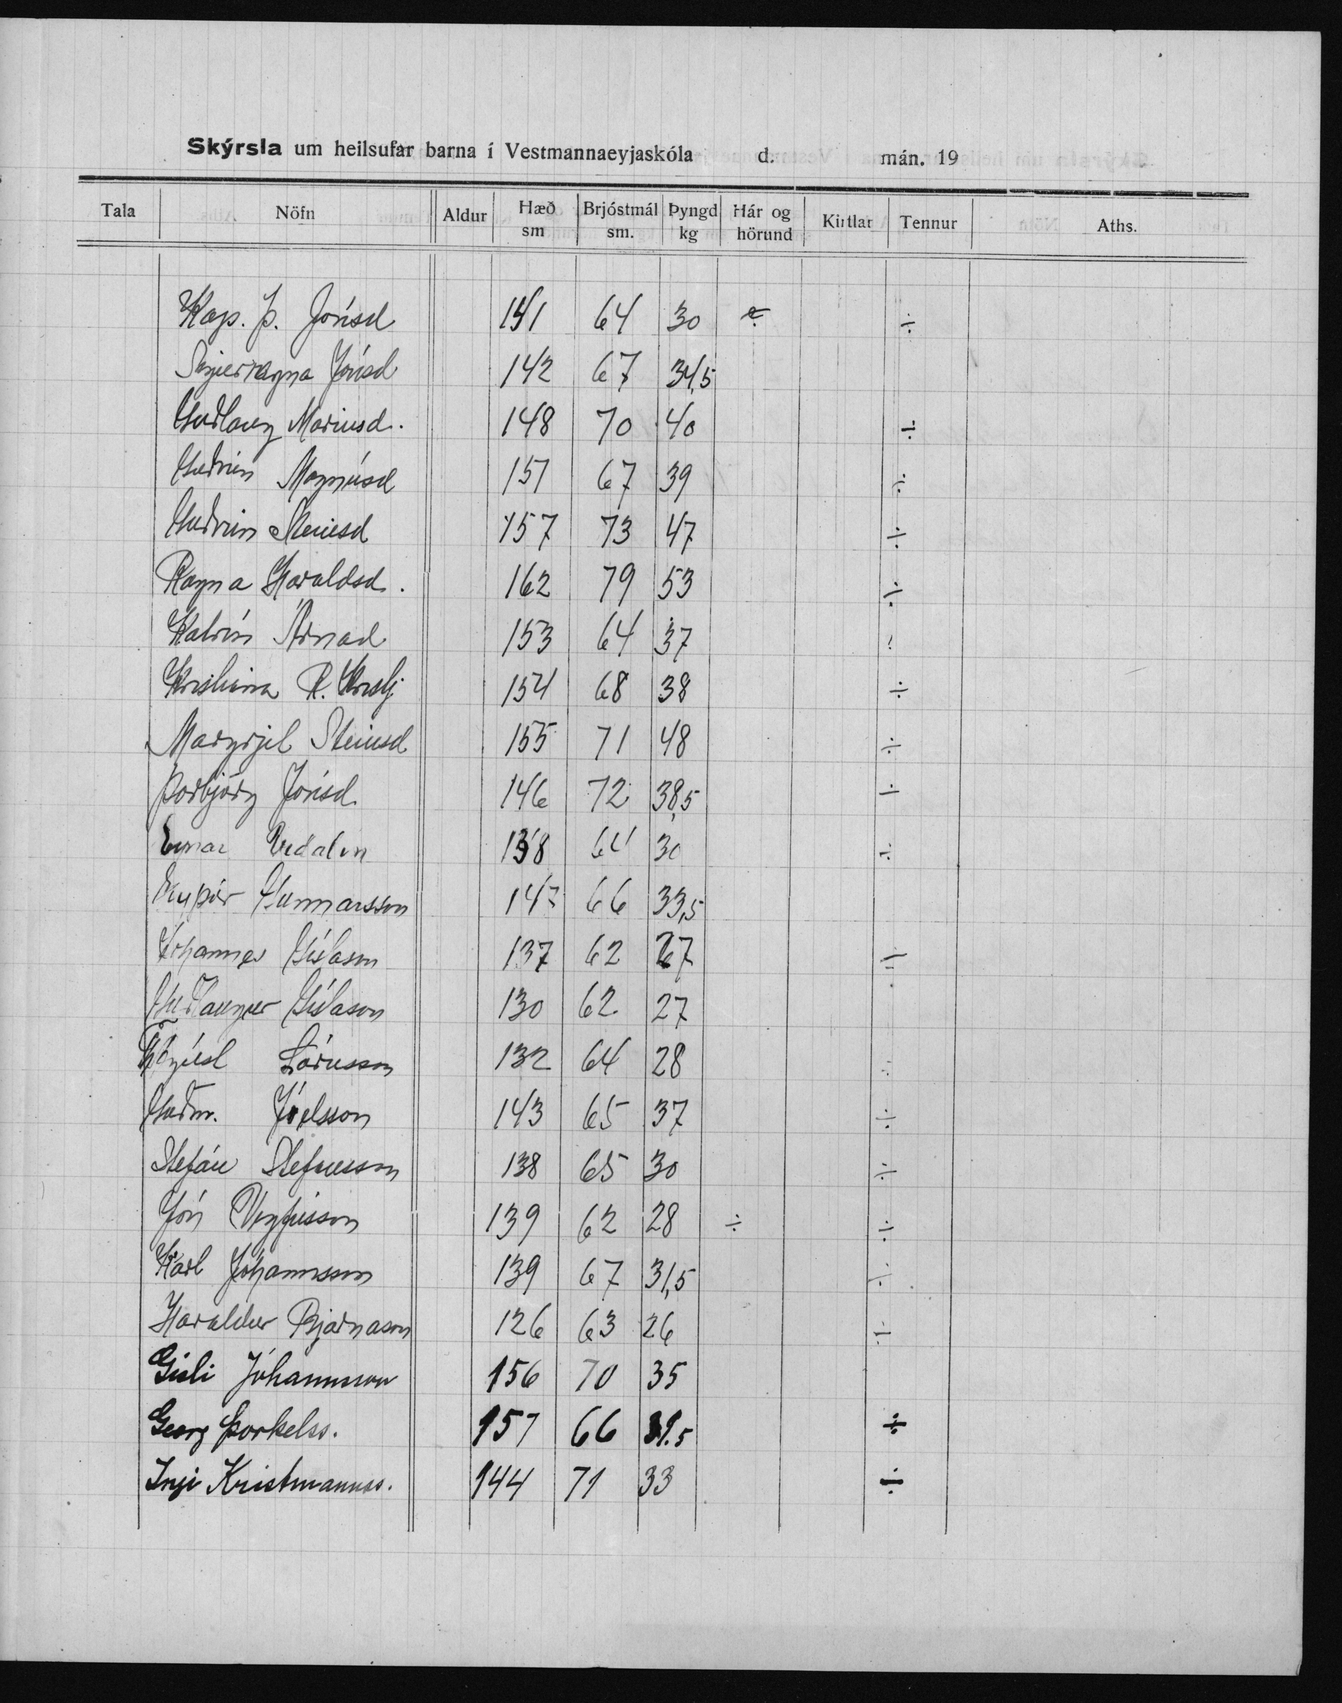 Skýrsla um heilsufar barna í Vestmannaeyjaskóla d. mán. 19
Tala Nöfn Aldur Hæð sm Brjóstmál sm. Þyngd kg Hár og hörund Kirtlar Tennur Aths.
Þ. Jónsd 64 30 ÷
Sigurragna Jónsd 142 67 34,5
Guðlaug Maríusd. 148 70 40 ÷
Guðrún Magnúsd 151 67 39 ÷
Guðrún Steinsd 157 73 47 ÷
Ragna Haraldsd. 162 79 53 ÷
Katrín Árnad 153 64 37
Kristiana R. Kristj 154 68 38 ÷
Margrjet Steinsd 155 71 48 ÷
Þorbjörg Jónsd. 146 72 38,5 ÷
Einar Vídalín 138 64 30 ÷
Eyþór Gunnarsson 147 66 33,5
Jóhannes Gíslason 137 62 27 ÷
Guðlaugur Gíslason 130 62 27
Ágúst Lárusson 132 64 28 ÷
Guðm. Jóelsson 143 65 37 ÷
Stefán Stefánsson 138 65 30 ÷
Jón Vigfússon 139 62 28 ÷ ÷
Karl Jóhannsson 139 67 31,5 ÷
Haraldur Bjarnason 126 63 26 ÷
Gísli Jóhannsson 156 70 35
Georg Þorkelss. 157 66 ÷
Ingi Kristmannss. 144 71 33 ÷